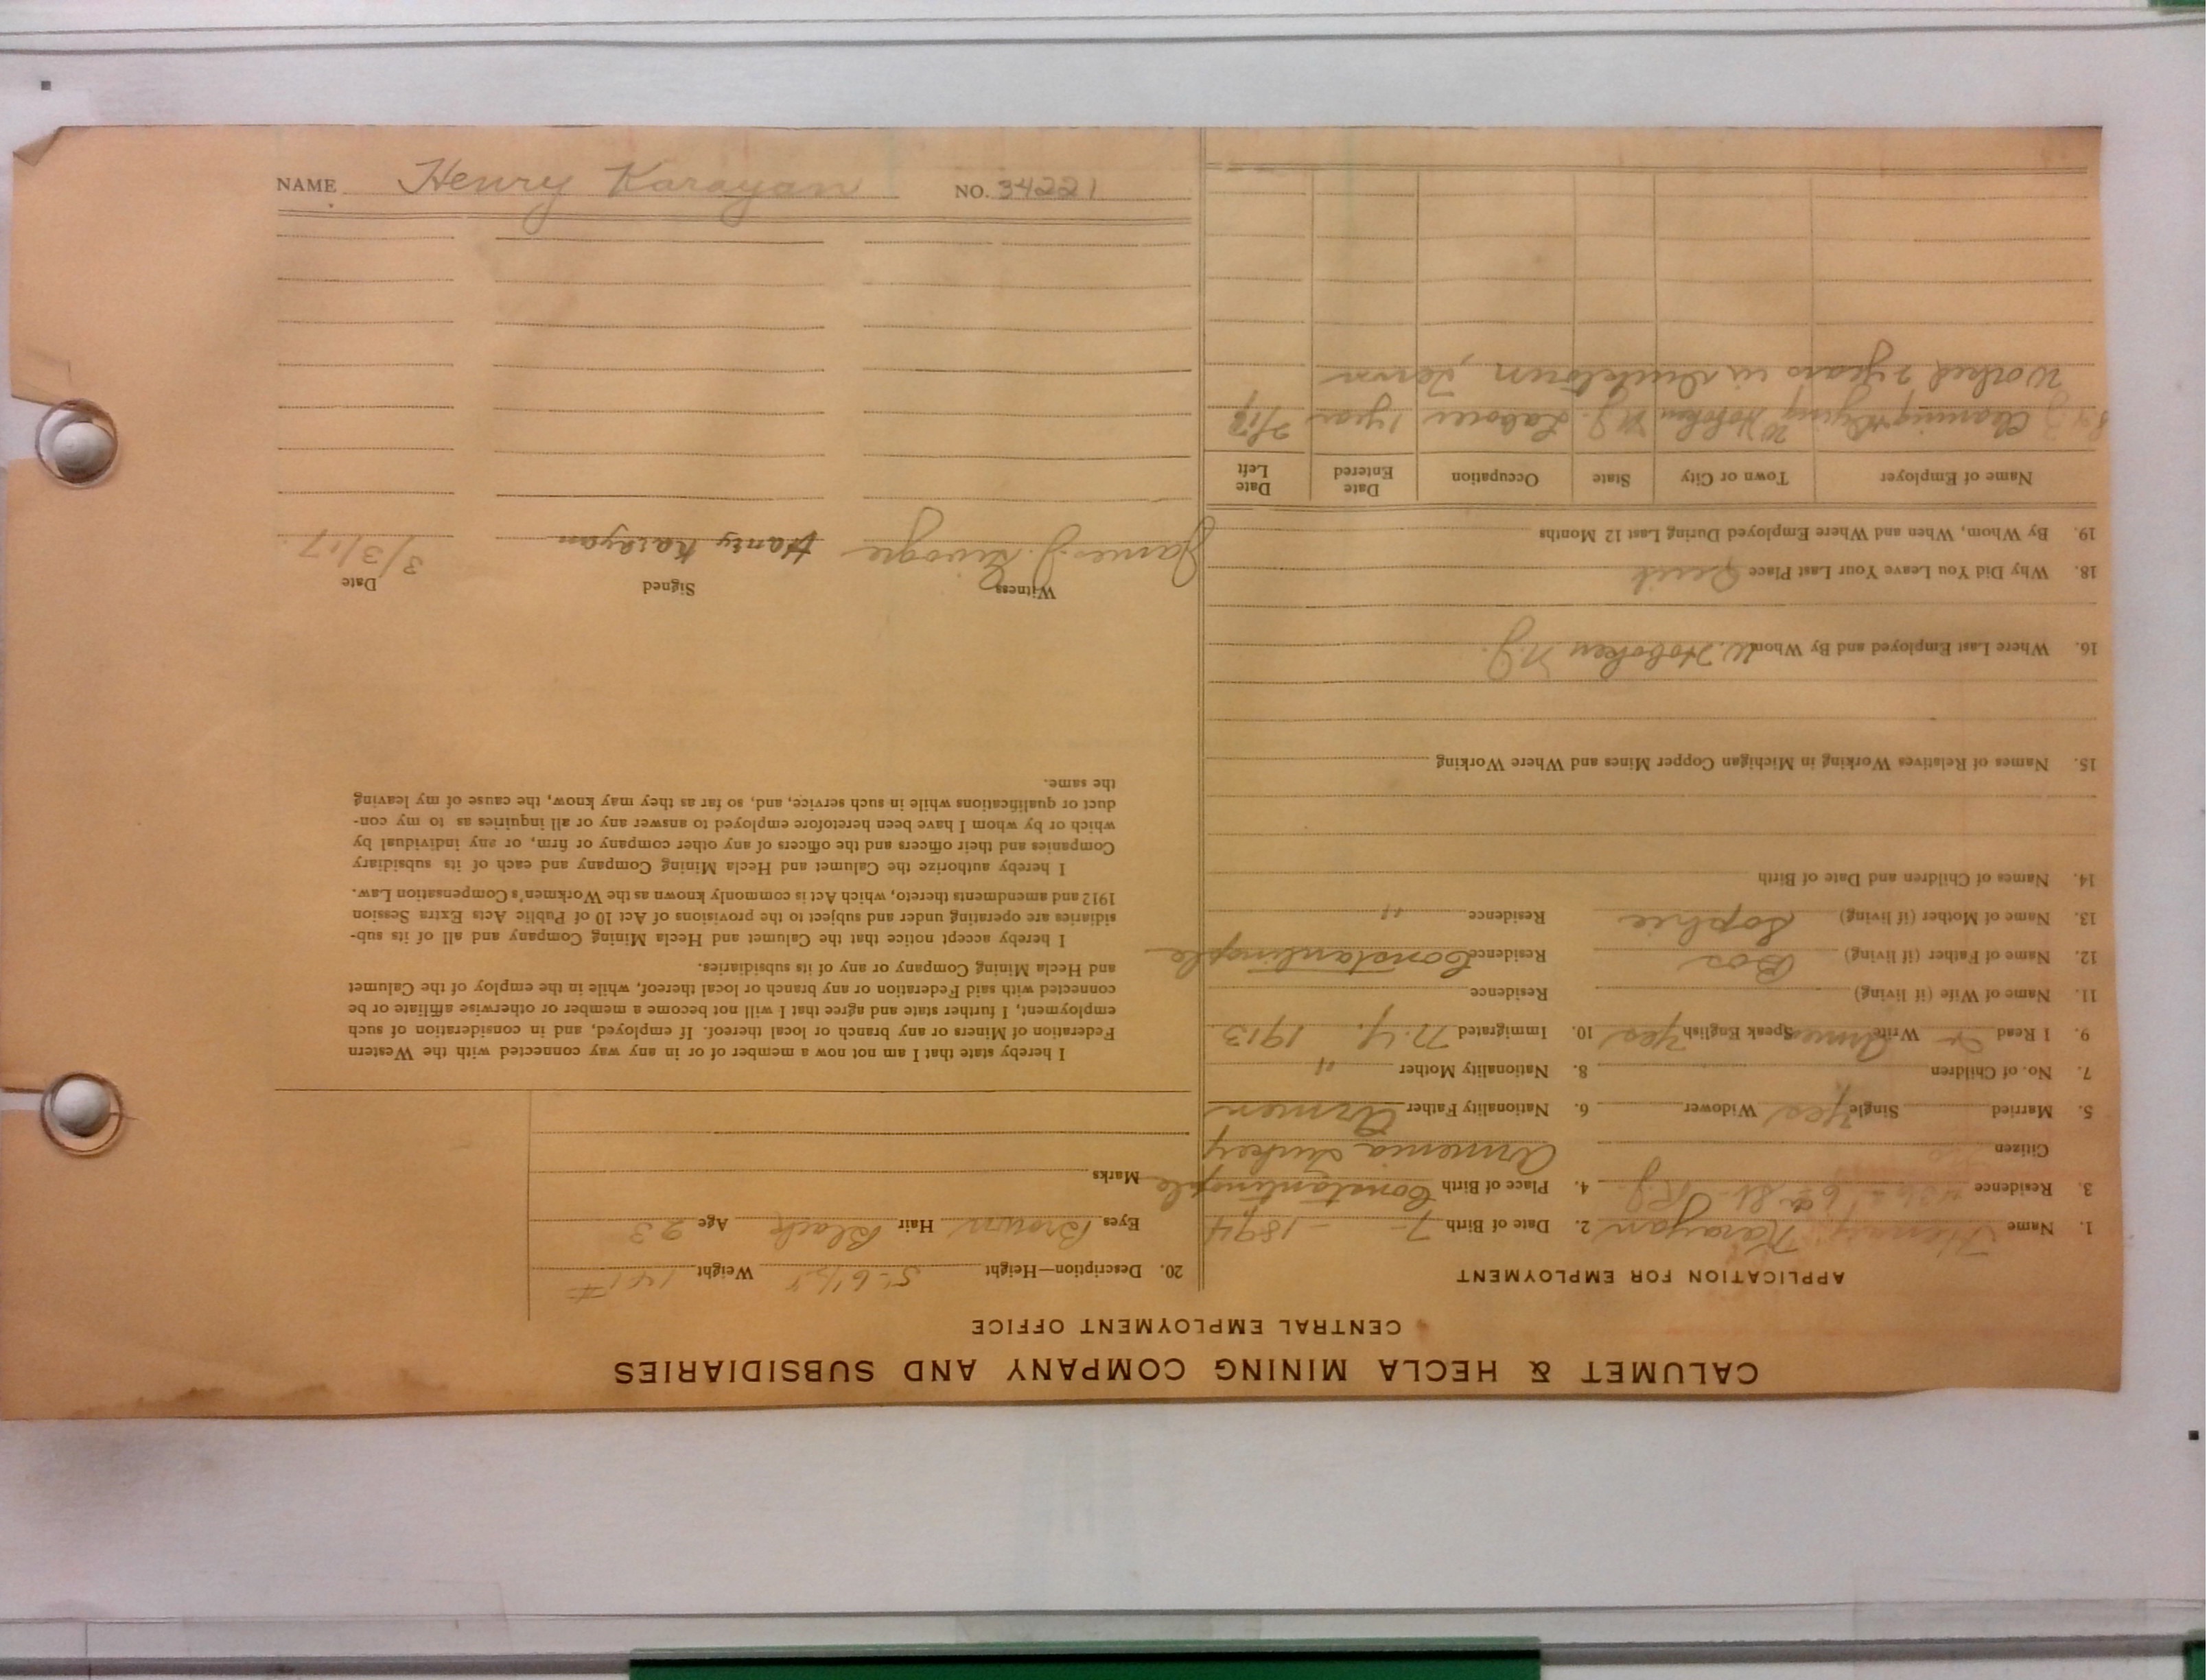 CALUMET & HECLA MINING COMPANY AND SUBSIDIARIES
CENTRAL EMPLOYMENT OFFICE
APPLICATION FOR EMPLOYMENT
1. Name Henry Karayan 2. Date of Birth 7 - 1894
3. Residence 6th St. 4. Place of Birth Constantinople
Citizen Armenia Turkey
5. Married Single Yes Widower 6. Nationality Father Armen
7. No. of Children 8. Nationality Mother "
9. I Read Write Armen Speak English Yes 10. Immigrated N.Y. 1913
11. Name of Wife (if living) Residence
12. Name of Father (if living) Bos Residence Constantinople
13. Name of Mother (if living) Sophie Residence "
14. Names of Children and Date of Birth
15. Names of Relatives Working in Michigan Copper Mines and Where Working
16. Where Last Employed and By Whom W. Hoboken N.J.
18. Why Did You Leave Your Last Place Quit
19. By Whom, When and Where Employed During Last 12 Months
Name of Employer Town or City State Occupation Date Entered Date Left
Cleaning & Dying W Hoboken N.J. Laborer 1 year 2/17
Worked 2 years in Ducktown, Tenn
20. Description—Height 5' 6 1/2" Weight 141 #
Eyes Brown Hair Black Age 23
Marks
I hereby state that I am not now a member of or in any way connected with the Western
Federation of Miners or any branch or local thereof. If employed, and in consideration of such
employment, I further state and agree that I will not become a member or otherwise affiliate or be
connected with said Federation or any branch or local thereof, while in the employ of the Calumet
and Hecla Mining Company or any of its subsidiaries.
I hereby accept notice that the Calumet and Hecla Mining Company and all of its sub-
sidiaries are operating under and subject to the provisions of Act 10 of Public Acts Extra Session
1912 and amendments thereto, which Act is commonly known as the Workmen's Compensation Law.
I hereby authorize the Calumet and Hecla Mining Company and each of its subsidiary
Companies and their officers and the officers of any other company or firm, or any individual by
which or by whom I have been heretofore employed to answer any or all inquiries as to my con-
duct or qualifications while in such service, and, so far as they may know, the cause of my leaving
the same.
Witness Signed Date
James J. Hanry Karayan 3/3/17.
NAME Henry Karayan NO. 34221